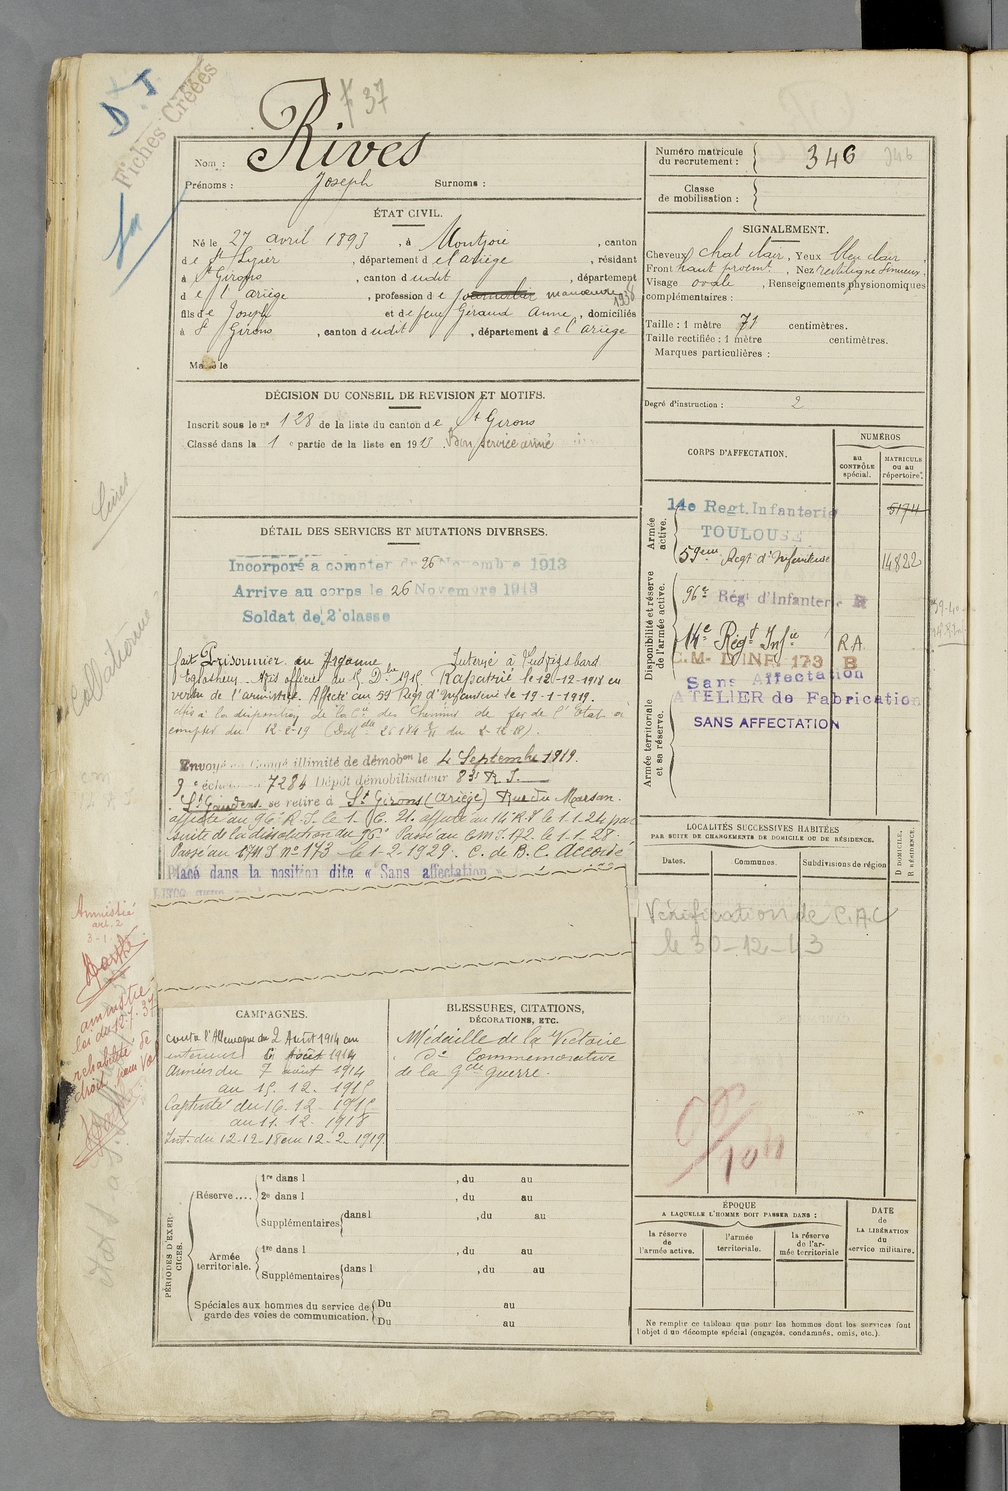 F 37
D. J
Fiches Créées
Nom : Rives
Prénoms : Joseph Surnoms :
Numéro matricule
du recrutement : 346 346
Classe
de mobilisation :
ÉTAT CIVIL.
Né le 27 avril 1893, à Montjoie, canton
de St Lizier, département de l'ariège, résidant
à St Girons, canton dudit, département
de l'ariège, profession de journalier manœuvre 1938
fils de Joseph et de feue Géraud Anne, domiciliés
à St Girons, canton dudit, département de l'ariège
Marié le
SIGNALEMENT.
Cheveux chat clair, Yeux bleu clair,
Front haut proemt., Nez rectiligne sinueux,
Visage ovale, Renseignements physionomiques
complémentaires :
Taille : 1 mètre 71 centimètres.
Taille rectifiée : 1 mètre centimètres.
Marques particulières :
Degré d'instruction : 2
DÉCISION DU CONSEIL DE REVISION ET MOTIFS.
Inscrit sous le no 128 de la liste du canton de St Girons
Classé dans la 1 e partie de la liste en 1913 Bon service armé
CORPS D'AFFECTATION.
NUMÉROS
au
CONTRÔLE
spécial.
MATRICULE
ou au
répertoire.
Armée
active.
14e Regt. Infanterie 5174
TOULOUSE
59eme Regt d'Infanterie 14822
Disponibilité et réserve
de l'armée active.
96e Rég d'Infanterie R
14e Régt Infie RA
C.M. D'INF. 173 B
Sans Affectation
ATELIER de Fabrication
SANS AFFECTATION
Armée territoriale
et sa réserve.
DÉTAIL DES SERVICES ET MUTATIONS DIVERSES.
Incorporé a compter du 26 Novembre 1913
Arrive au corps le 26 Novembre 1913
Soldat de 2e classe
Collationné
fait Prisonnier en Argonne Interné à Ludwigsbard
Eglosheim. Avis officiel du 15 Dbre 1915. Rapatrié le 12-12-1918 en
vertu de l'armistice. Affecté au 59 Régt d'Infanterie le 19-1-1919.
Mis à la disposition de la Cie des Chemins de fer de l'Etat à
compter du 12-2-19
Envoyé en Congé illimité de démobon le 4 Septembre 1919.
9e échelon 7284 Dépôt démobilisateur 83e R.I.
St Gaudens se retire à St Girons (ariège) Rue du Marsan.
affecté au 96e R.I. le 1. 6. 21. affecté au 14e R.I le 1.1.24 par
suite de la dissolution du 96e Passé au CM I. 172 le 1.1.28.
Passé au CM I no 173 le 1-2-1929. C. de B.C. Accordé
Placé dans la position dite « Sans affectation »
LOCALITÉS SUCCESSIVES HABITÉES
PAR SUITE DE CHANGEMENTS DE DOMICILE OU DE RÉSIDENCE.
Dates. Communes. Subdivisions de région
D DOMICILE.
R RÉSIDENCE.
Vérification de C.A.C
le 30-12-43
Amnistié
art. 2
3-1
amnistié
loi du 12.7.37
réhabilité de
droit
CAMPAGNES.
contre l'Allemagne du 2 Août 1914 au
intérieur 6 Août 1914
Armées du 7 août 1914
au 15. 12. 1915
Captivité du 16. 12. 1915
au 11. 12. 1918
Int. du 12-12-18 au 12-2-1919.
BLESSURES, CITATIONS,
DÉCORATIONS, ETC.
Médaille de la Victoire
do Commemorative
de la gde guerre.
PÉRIODES D'EXERCICES.
Réserve....
1re dans l , du au
2e dans l , du au
Supplémentaires dans l , du au
Armée
territoriale.
1re dans l , du au
Supplémentaires dans l , du au
Spéciales aux hommes du service de
garde des voies de communication.
Du au
Du au
ÉPOQUE
A LAQUELLE L'HOMME DOIT PASSER DANS :
la réserve
de
l'armée active.
l'armée
territoriale.
la réserve
de l'ar-
mée territoriale
DATE
de
LA LIBÉRATION
du
service militaire.
Ne remplir ce tableau que pour les hommes dont les services font
l'objet d'un décompte spécial (engagés, condamnés, omis, etc.).